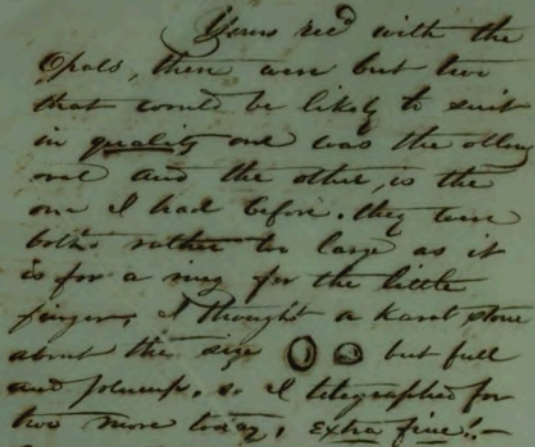 Yours recd with the
Opals, there were but two
that would be likely to suit
in quality one was the oblong
oval and the other, is the
one I had before. they were
both rather too large as it
is for a ring for the little
finger, I thought a Karat stone
about this size but full
and plump, so I telegraphed for
two more today, extra fine!—